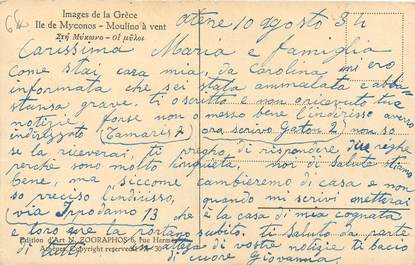 66
Images de la Grèce
Ile de Myconos - Moulino à vent
Στή Μύκονο - Οἱ μῦλοι
Atene 10 agosto 34
Carissima Maria e famiglia
Come stai cara mia, da Carolina mi ero
informata che sei stata ammalata e abba-
stanza grave. ti o scritto e non o ricevuto tue
notizie forse non o messo bene l'indirisso avevo
indirizzato (Tamares 7) ora scrivo Gaston 2) non so
se la riceverai, ti prego di rispondere due righe
perchè sono molto inquieta, noi di salute stiamo
bene, ma siccome cambieremo di casa e non
so preciso l'indirisso, quando mi scrivi metterai
via Ippodamo 13 che è la casa di mia cognata
e loro me la portano subito. ti saluto da parte
di tutti in attesa di vostre notizie ti bacio
di cuore Giovanna
Edition d'Art N. ZOGRAPHOS 6, rue Hermès
Athènes Copyright reserved 30